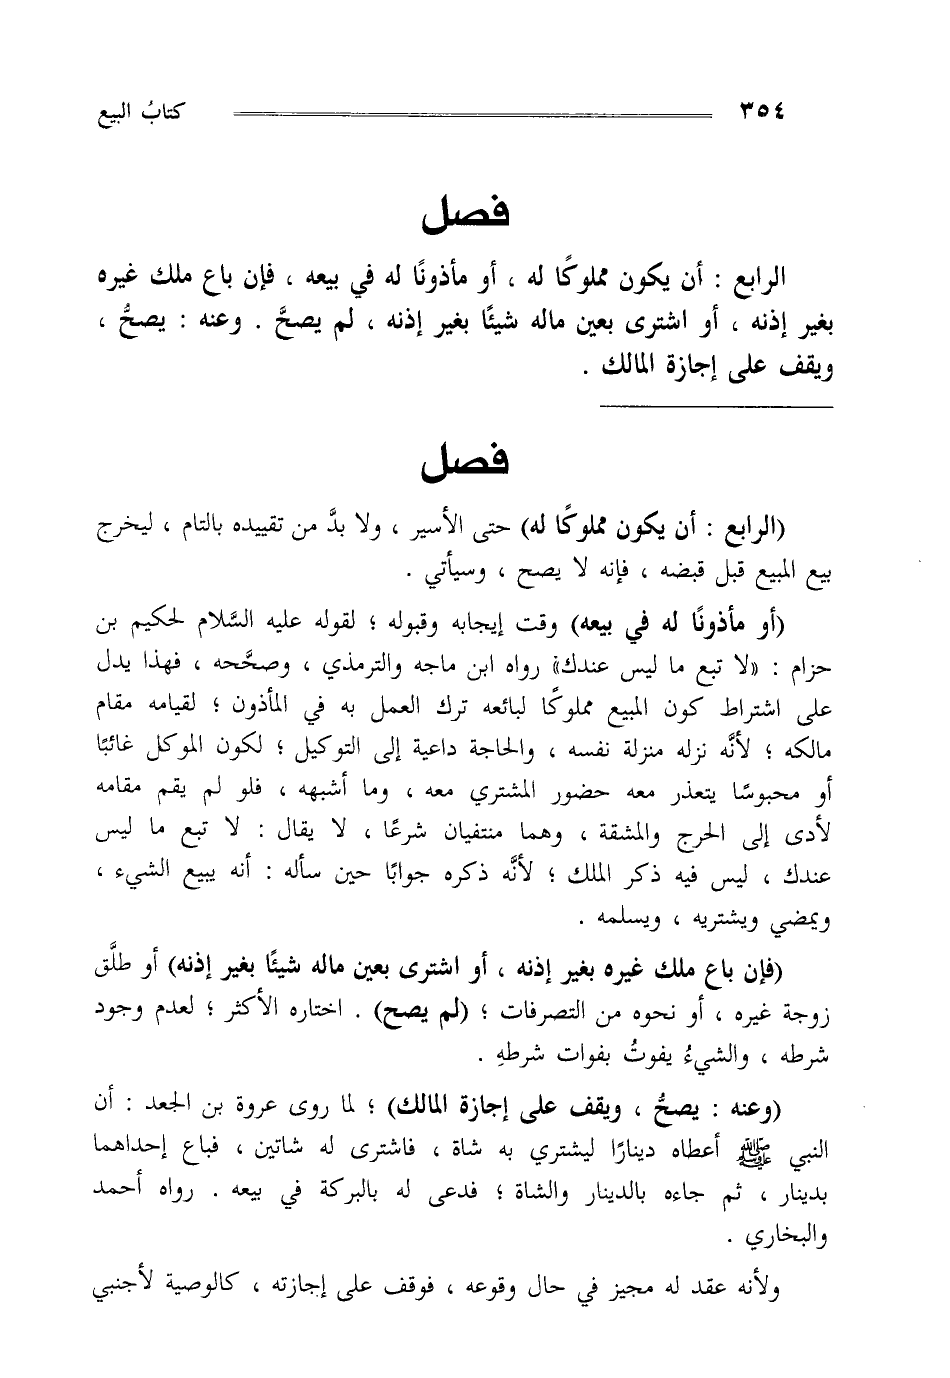 ٣٥٤ كتابُ البيع
فصل
الرابع : أن يكون مملوكًا له ، أو مأذونًا له في بيعه ، فإن باع ملك غيره
بغير إذنه ، أو اشترى بعين ماله شيئًا بغير إذنه ، لم يصحَّ . وعنه : يصحُّ ،
ويقف على إجازة المالك .
فصل
(الرابع : أن يكون مملوكًا له) حتى الأسير ، ولا بدَّ من تقييده بالتام ، ليخرج
بيع المبيع قبل قبضه ، فإنه لا يصح ، وسيأتي .
(أو مأذونًا له في بيعه) وقت إيجابه وقبوله ؛ لقوله عليه السَّلام لحكيم بن
حزام : «لا تبع ما ليس عندك» رواه ابن ماجه والترمذي ، وصحَّحه ، فهذا يدل
على اشتراط كون المبيع مملوكًا لبائعه ترك العمل به في المأذون ؛ لقيامه مقام
مالكه ؛ لأنَّه نزله منزلة نفسه ، والحاجة داعية إلى التوكيل ؛ لكون الموكل غائبًا
أو محبوسًا يتعذر معه حضور المشتري معه ، وما أشبهه ، فلو لم يقم مقامه
لأدى إلى الحرج والمشقة ، وهما منتفيان شرعًا ، لا يقال : لا تبع ما ليس
عندك ، ليس فيه ذكر الملك ؛ لأنَّه ذكره جوابًا حين سأله : أنه يبيع الشيء ،
ويمضي ويشتريه ، ويسلمه .
(فإن باع ملك غيره بغير إذنه ، أو اشترى بعين ماله شيئًا بغير إذنه) أو طلَّق
زوجة غيره ، أو نحوه من التصرفات ؛ (لم يصح) . اختاره الأكثر ؛ لعدم وجود
شرطه ، والشيءُ يفوتُ بفوات شرطهِ .
(وعنه : يصحُّ ، ويقف على إجازة المالك) ؛ لما روى عروة بن الجعد : أن
النبي ﷺ أعطاه دينارًا ليشتري به شاة ، فاشترى له شاتين ، فباع إحداهما
بدينار ، ثم جاءه بالدينار والشاة ؛ فدعى له بالبركة في بيعه . رواه أحمد
والبخاري .
ولأنه عقد له مجيز في حال وقوعه ، فوقف على إجازته ، كالوصية لأجنبي